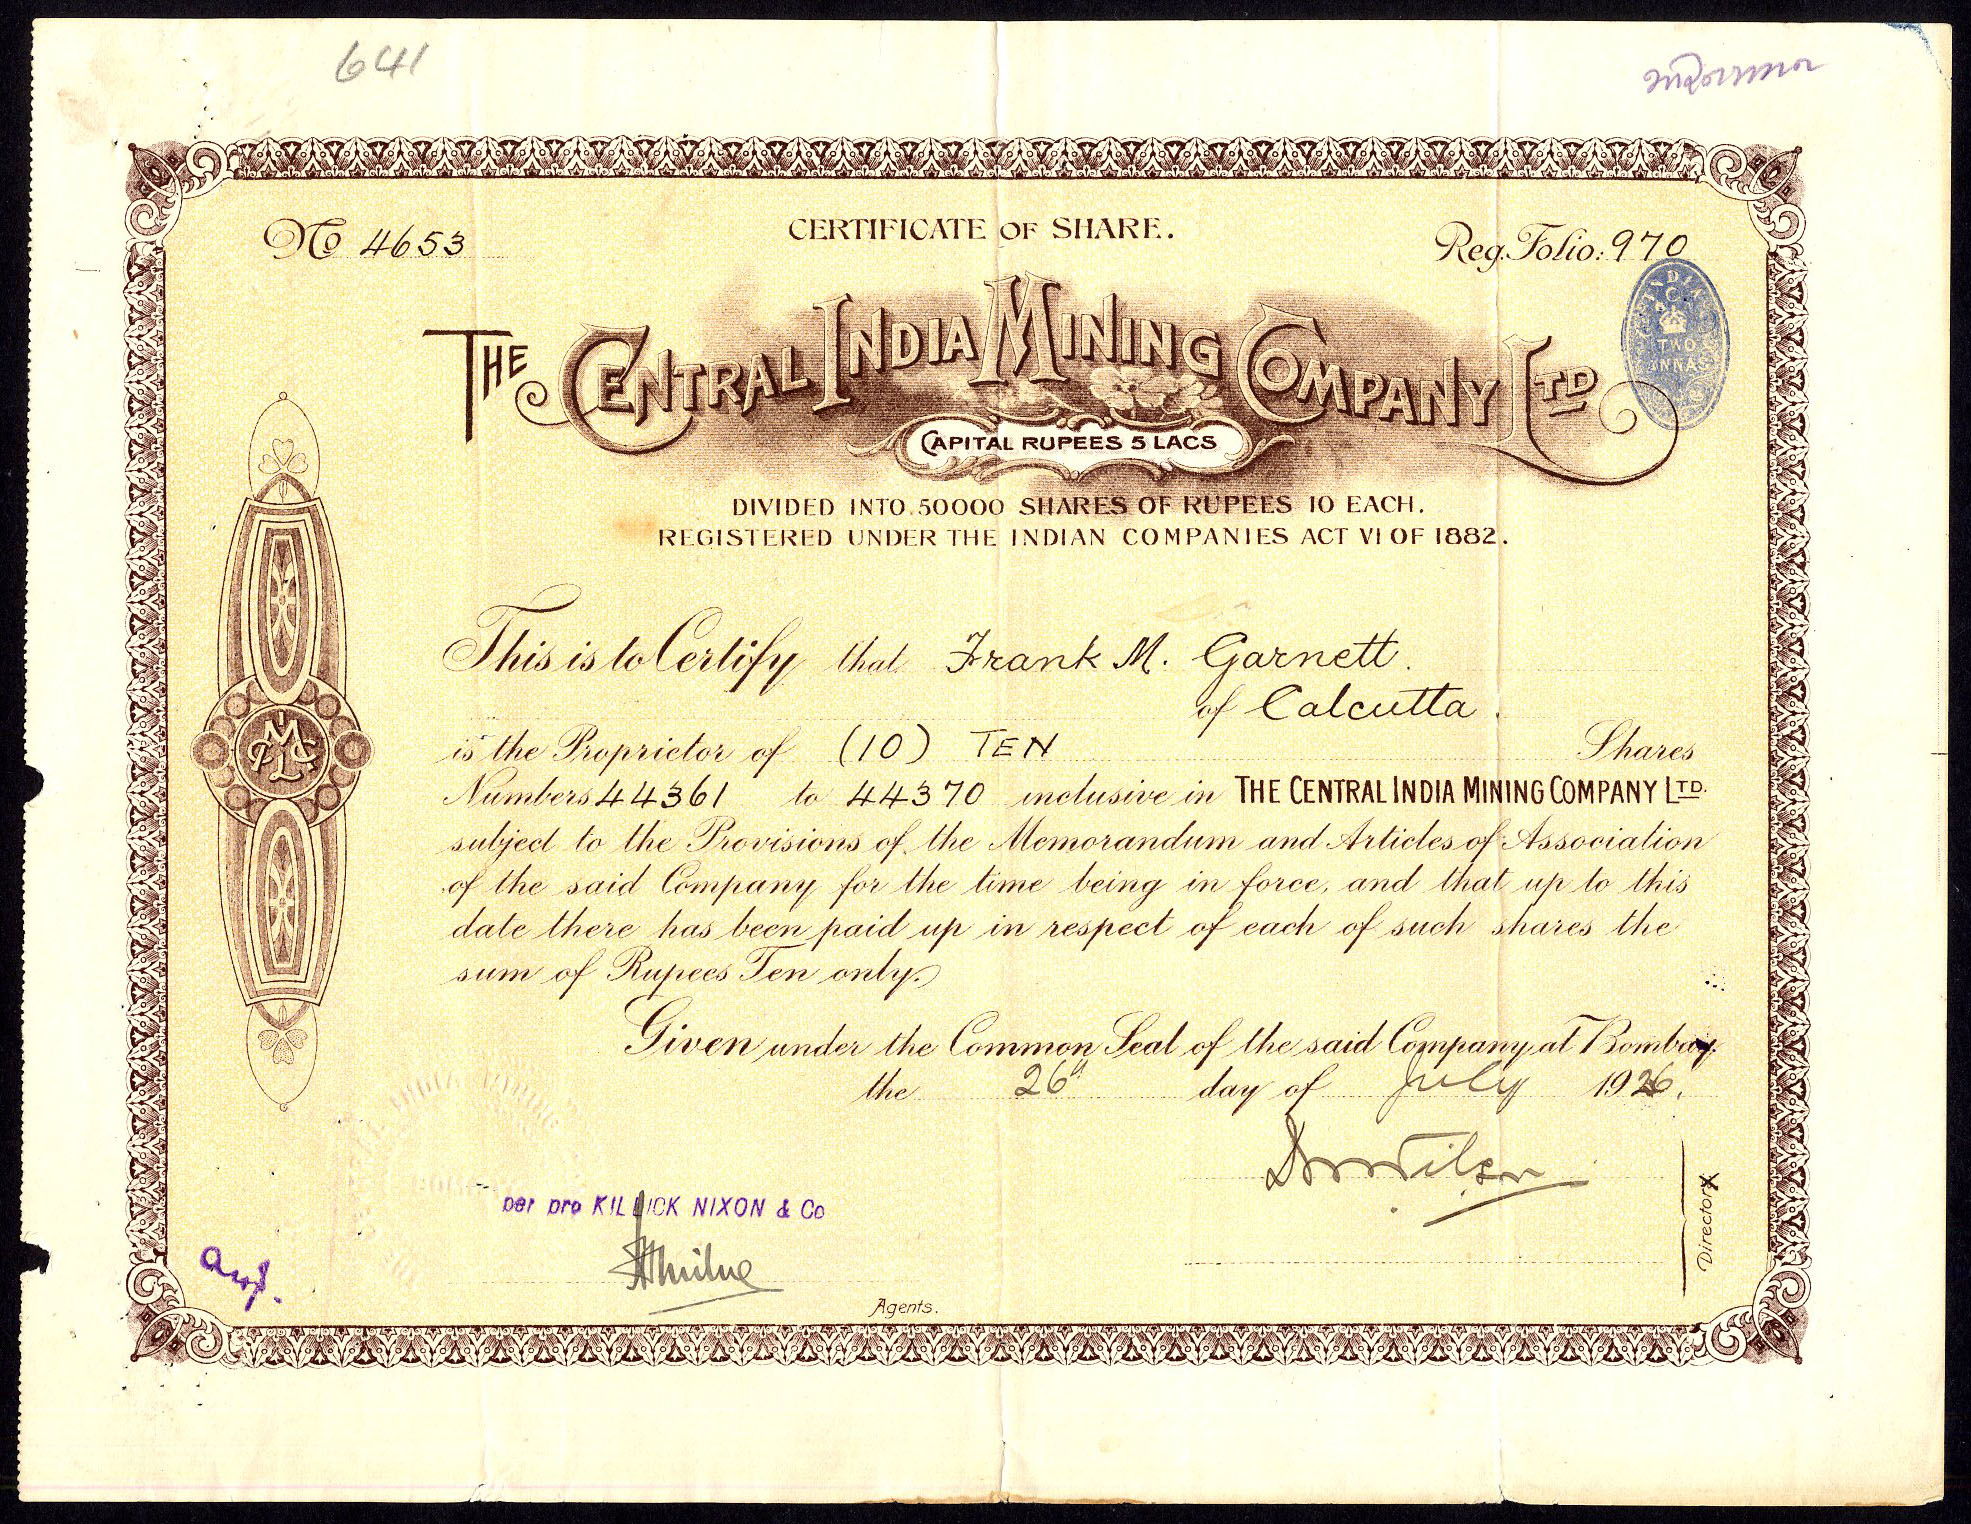 641
No 4653
CERTIFICATE OF SHARE.
Reg. Folio: 970
INDIA
TWO
ANNAS
THE CENTRAL INDIA MINING COMPANY LTD
CAPITAL RUPEES 5 LACS
DIVIDED INTO 50000 SHARES OF RUPEES 10 EACH.
REGISTERED UNDER THE INDIAN COMPANIES ACT VI OF 1882.
This is to Certify that Frank M. Garnett.
of Calcutta.
is the Proprietor of (10) TEN Shares
Numbers 44361 to 44370 inclusive in THE CENTRAL INDIA MINING COMPANY LTD.
subject to the Provisions of the Memorandum and Articles of Association
of the said Company for the time being in force, and that up to this
date there has been paid up in respect of each of such shares the
sum of Rupees Ten only.
Given under the Common Seal of the said Company at Bombay.
the 26th day of July 1926.
per pro KILLICK NIXON & Co
Agents.
Director